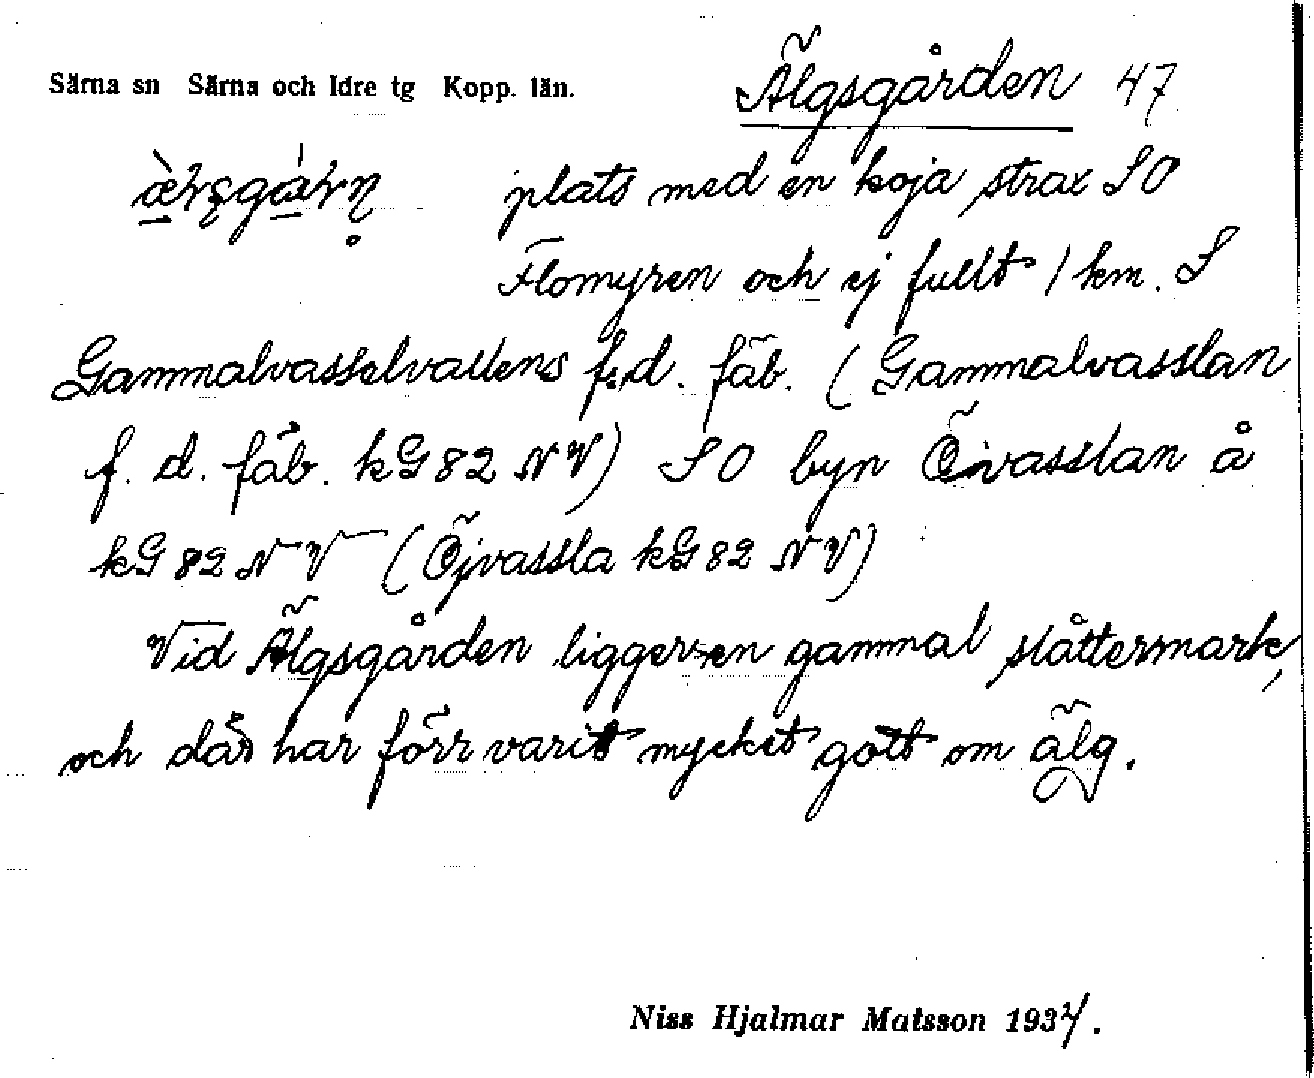 Särna sn Särna och Idre tg Kopp. län. Älgsgården 47
plats med en koja strax SO
Flomyren och ej fullt 1 km. S
Gammalvasselvallens f.d. fäb. (Gammalvasslan
f. d. fäb. kG 82 NV) SO byn Öivasslan å
kG 82 NV (Öjvassla kG 82 NV)
Vid Älgsgården ligger en gammal slåttermark,
och där har förr varit mycket gott om älg.
Niss Hjalmar Matsson 193